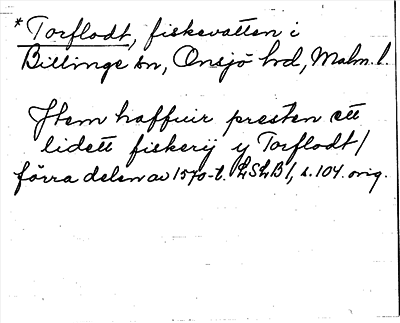 * Torflodt, fiskevatten i
Billinge sn, Onsjö hd, Malm. l.
Jtem haffuir presten ett
lidett fiskerij y Torflodt/
förra delen av 1570-t. LSLB 1, s. 104. orig.